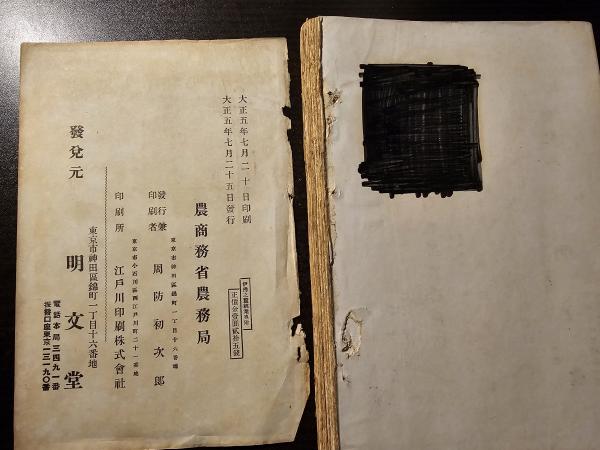 大正五年七月二十日印刷
大正五年七月二十五日發行
正價金壹圓貳拾五錢
農商務省農務局
東京市神田區錦町一丁目十六番地
發行兼
印刷者
周防初次郎
東京市小石川區西江戸川町二十一番地
印刷所
江戸川印刷株式會社
發兌元
東京市神田區錦町一丁目十六番地
明文堂
電話本局三四九一番
振替口座東京一三一九〇番